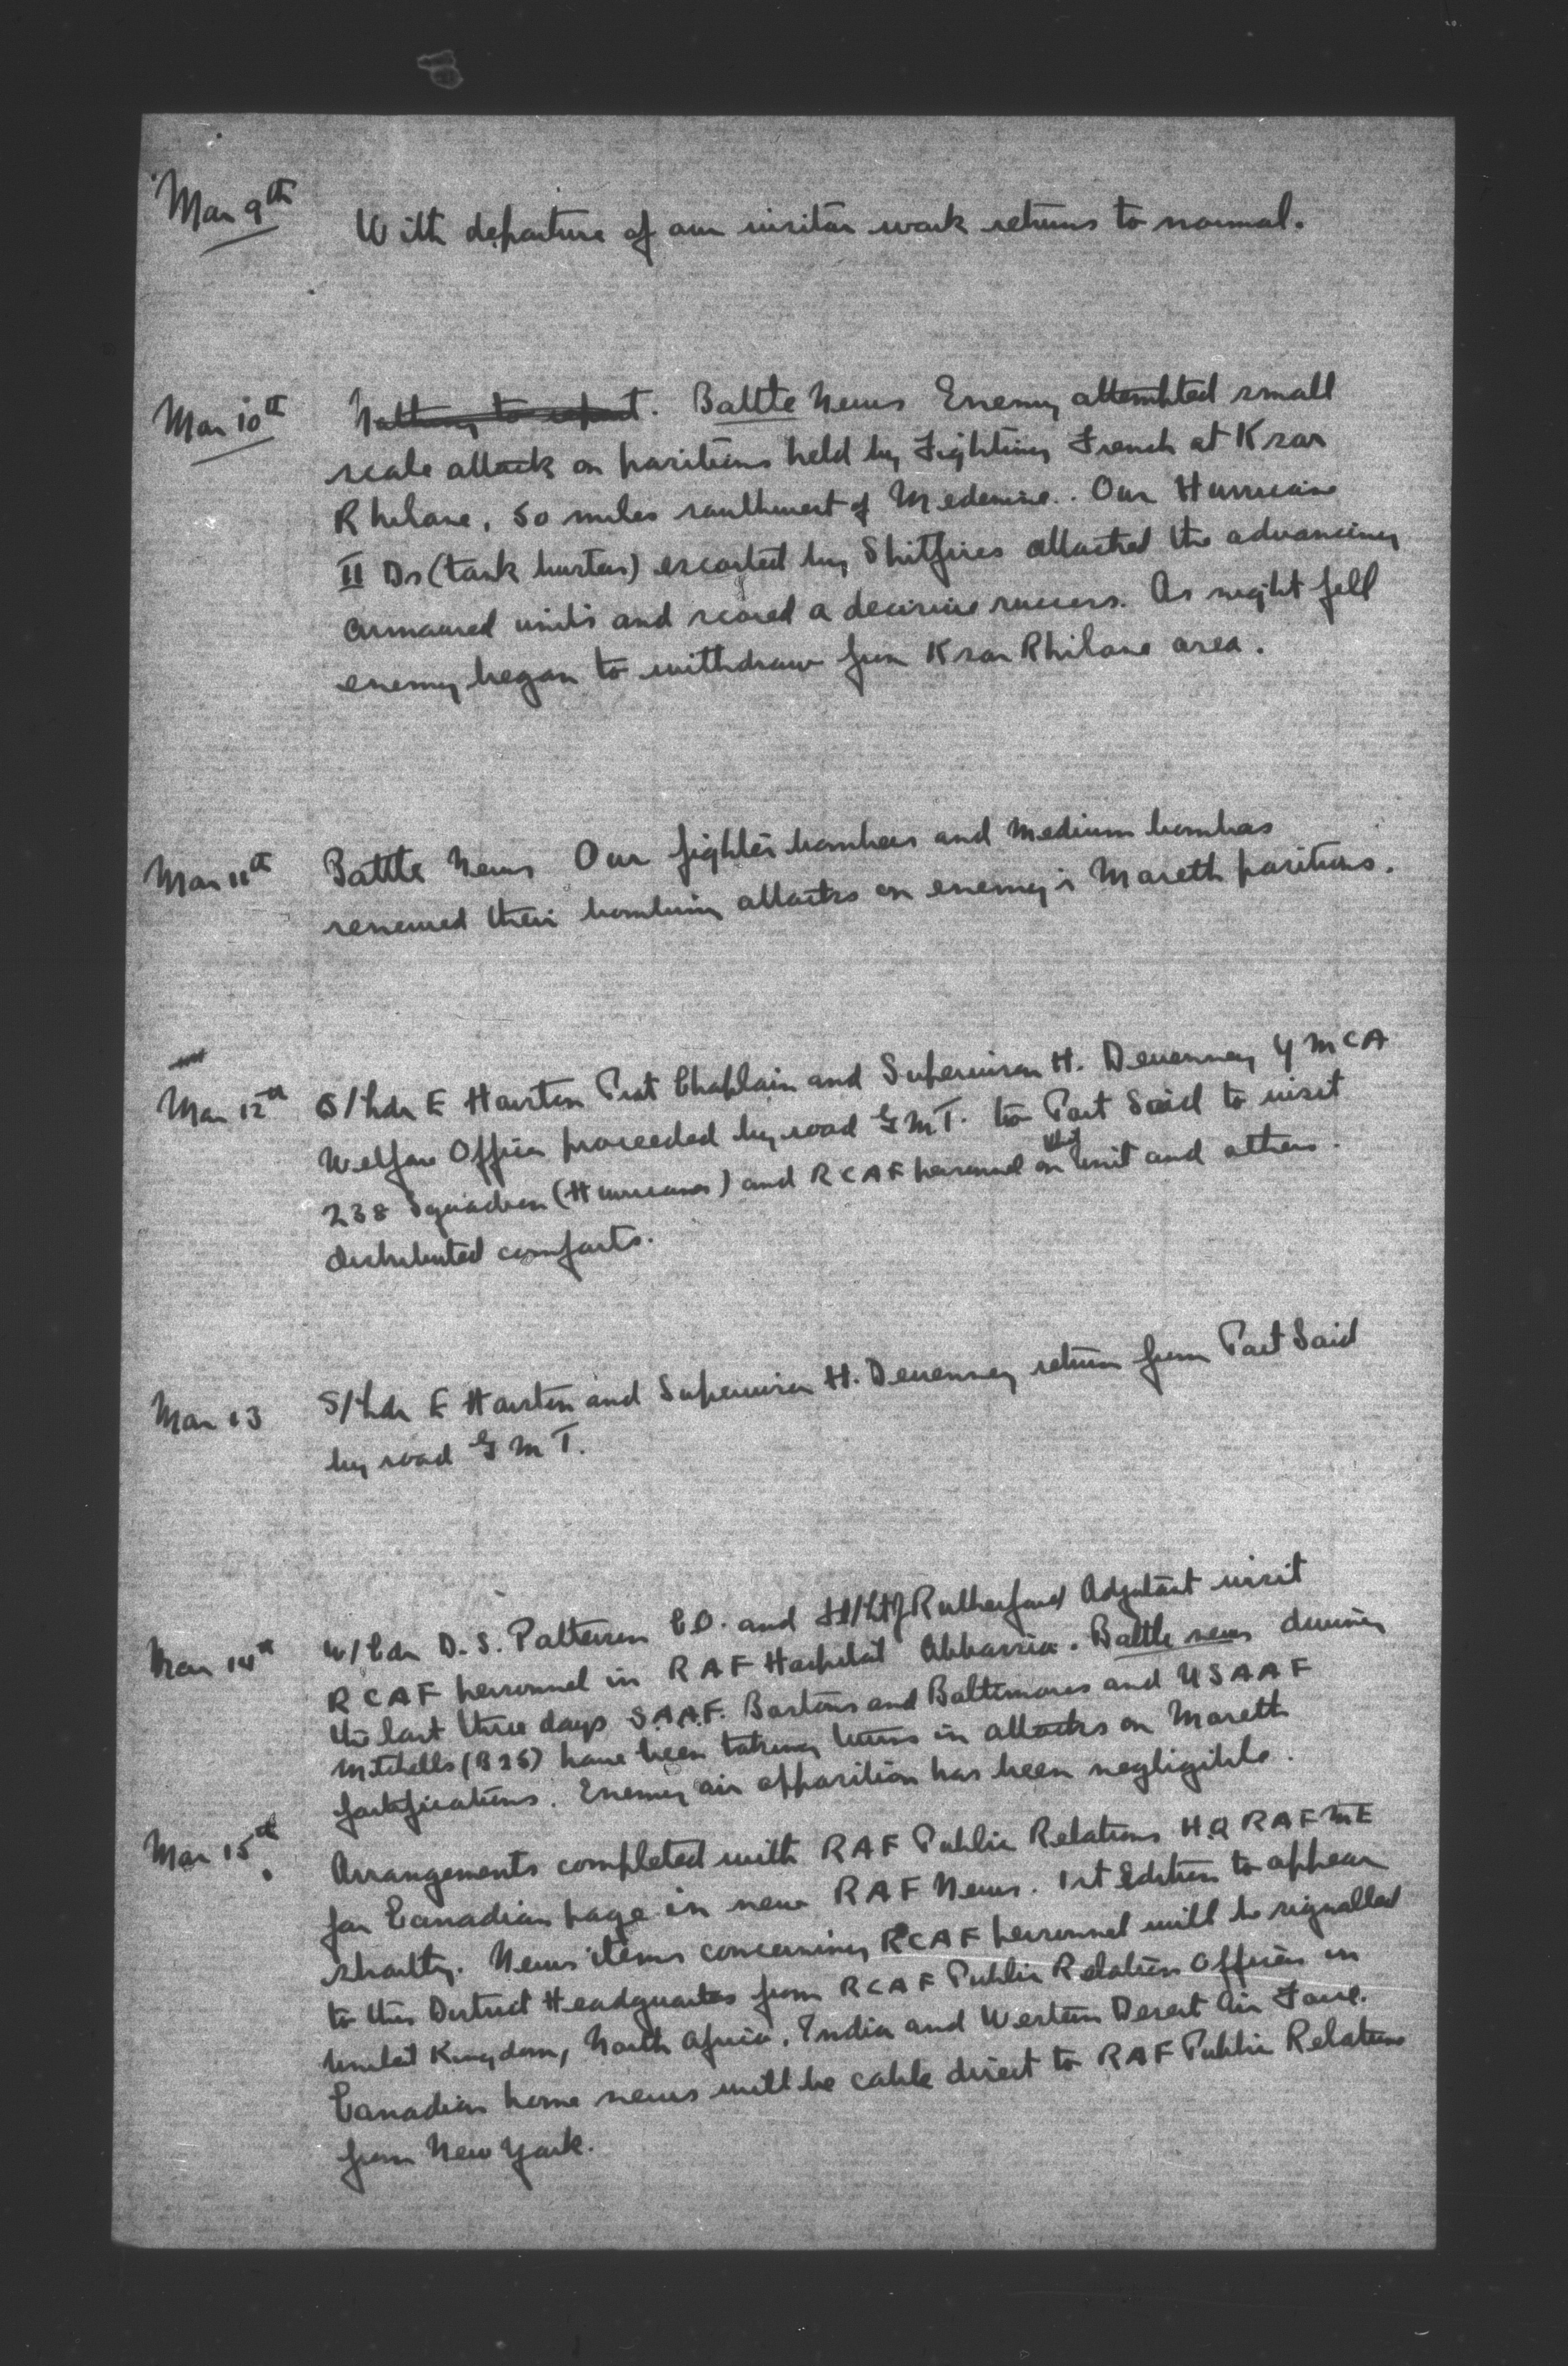 Mar 9th With departure of our visitor work returns to normal.
Mar 10th Nothing to report. Battle News Enemy attempted small
scale attack on positions held by Fighting French at Ksar
Rhilane, 50 miles southwest of Medenine. Our Hurricane
II Ds (tank busters) escorted by Spitfires attacked the advancing
armoured units and scored a decisive success. As night fell
enemy began to withdraw from Ksar Rhilane area.
Mar 11th Battle News Our fighter bombers and medium bombers
renewed their bombing attacks on enemy's Mareth positions.
Mar 12th S/Ldr E Harston Prot Chaplain and Supervisor H. Devenney YMCA
Welfare Officer proceeded by road GMT. to Port Said to visit
238 Squadron (Hurricanes) and RCAF personnel on this unit and others.
distributed comforts.
Mar 13 S/Ldr E Harston and Supervisor H. Devenney return from Port Said
by road GMT.
Mar 14th W/Cdr D.S. Patterson C.O. and Fl/Lt J Rutherford Adjutant visit
RCAF personnel in RAF Hospital Abbassia. Battle news during
the last three days S.A.A.F. Bostons and Baltimores and USAAF
Mitchells (B25) have been taking turns in attacks on Mareth
fortifications. Enemy air opposition has been negligible.
Mar 15th Arrangements completed with RAF Public Relations HQ RAF ME
for Canadian page in new RAF News. 1st Edition to appear
shortly. News items concerning RCAF personnel will be signalled
to this District Headquarters from RCAF Public Relations Officers in
United Kingdom, North Africa, India and Western Desert Air Force.
Canadian home news will be cable direct to RAF Public Relations
from New York.